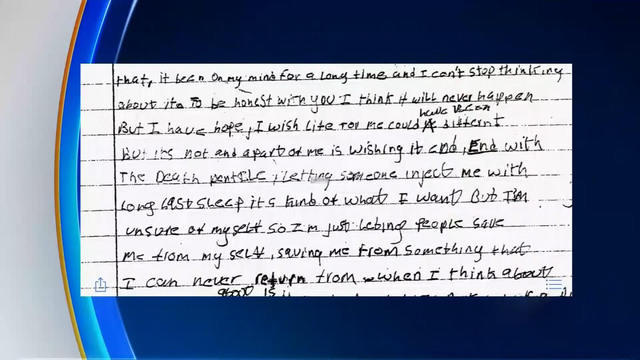 that, it been on my mind for a long time and I can't stop thinking
about it. To be honest with you I think it will never happen
But I have hope, I wish life for me could have been differnt
But it's not and apart of me is wishing it end, End with
The Death pentile, letting someone inject me with
long last sleep it's kind of what I want But I'm
unsure of myself so I'm just leting people save
me from my self, saving me from something that
I can never return from when I think about